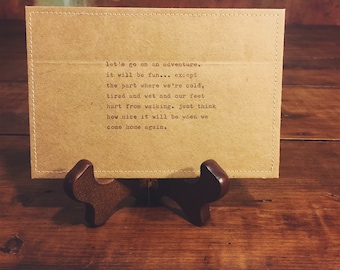 let's go on an adventure.
it will be fun... except
the part where we're cold,
tired and wet and our feet
hurt from walking. just think
how nice it will be when we
come home again.